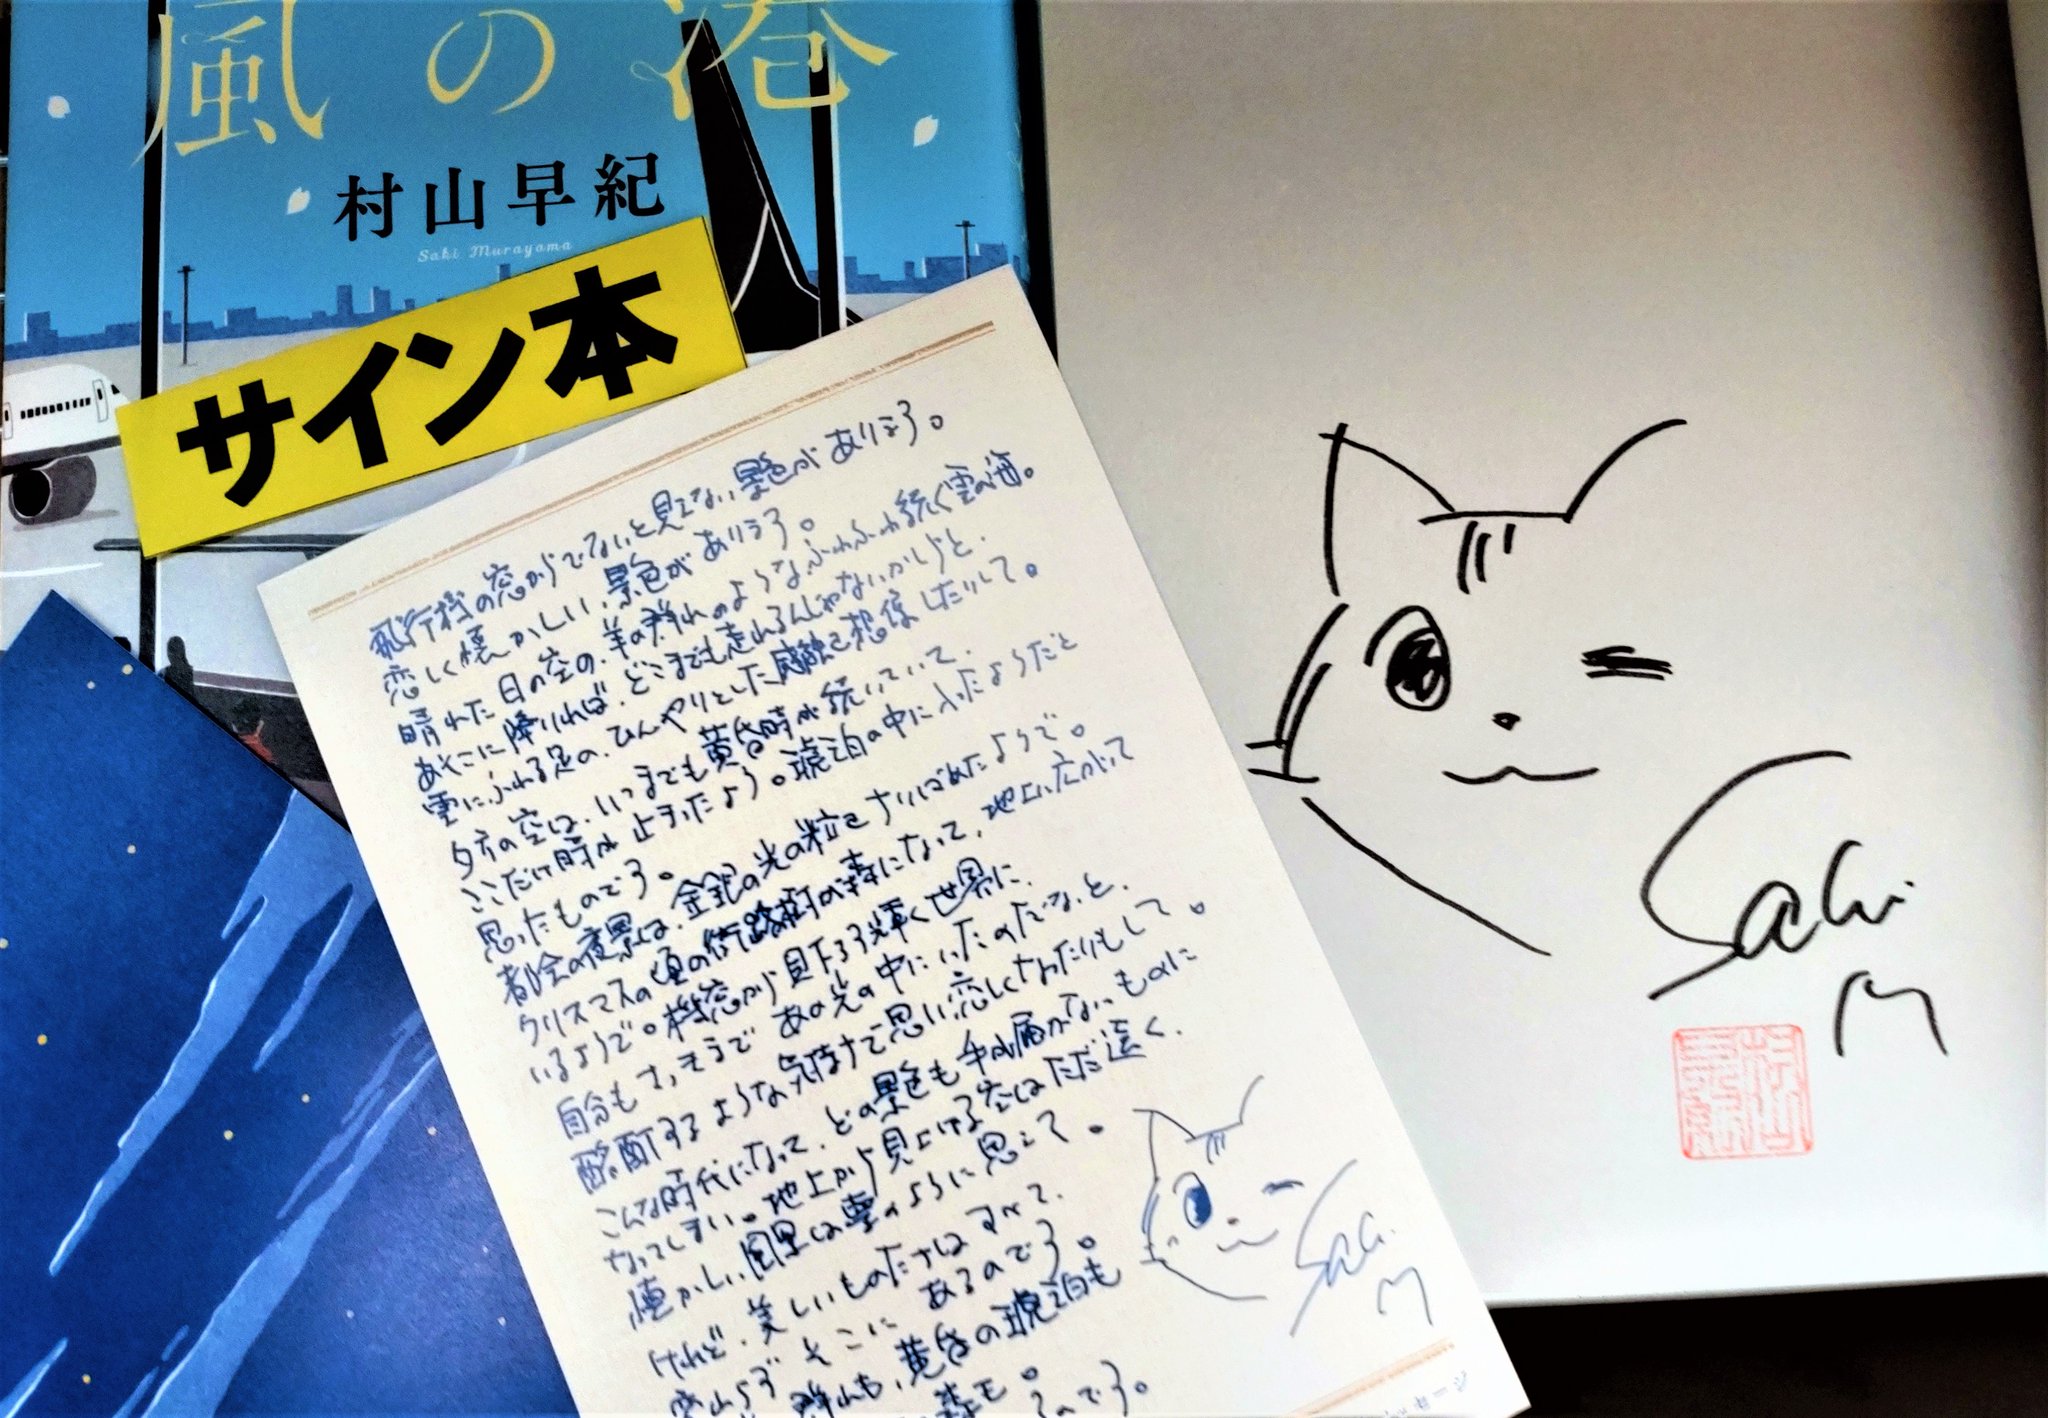 風の港
村山早紀
Saki Murayama
サイン本
飛行機の窓からでないと見えない景色がありまう。
恋しく懐かしい、景色がありまう。
晴れた日の空の、羊の群れのような、ふわふわ続く雲の海。
あそこに降りれば、どこまでも走れるんじゃないかしらと、
雲にふれる足の、ひんやりとした感触を想像したりして。
夕方の空は、いつまでも黄昏時が続いていて、
ここだけ時が止まったよう。琥珀の中に入ったようだと
思ったものです。
都会の夜景は、金銀の光の粒をちりばめたようで。
クリスマスの頃の街路樹が森になって、地上に広がって
いるようで。機窓から見下ろす輝く世界に、
自分もさっきまであの光の中にいたのだなあと、
酩酊するような気持ちで思い、恋しくなったりもして。
こんな時代になって、どの景色も手が届かないものに
なってしまい。地上から見上げる空はただ遠く、
懐かしい風景は夢のように思えて。
けれど、美しいものたちはすべて、
変わらず そこに あるのです。
群れも、黄昏の琥珀も
森も。
るのです。
Saki
M
Saki
M